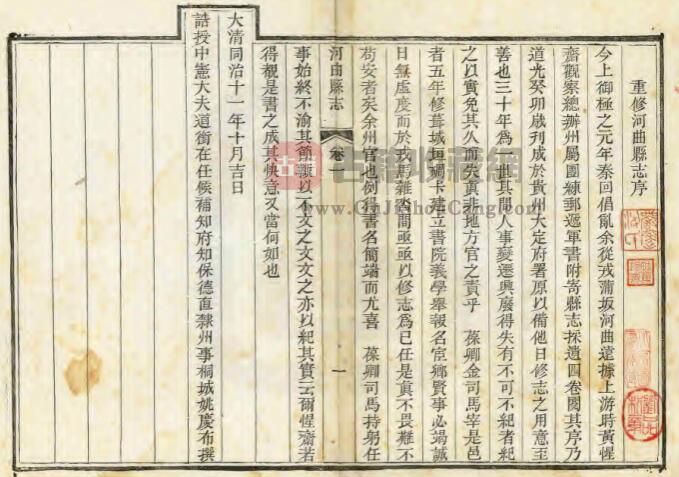 重修河曲縣志序
今上御極之元年秦回倡亂余從戎蒲坂河曲遠據上游時黃惺
齋觀察總辦州屬團練郵遞軍書附寄縣志採遺四卷閱其序乃
道光癸卯歲刊成於貴州大定府署原以備他日修志之用意至
善也三十年為一世其間人事變遷興廢得失有不可不紀者紀
之以實免其久而失真非地方官之責乎 葆卿金司馬宰是邑
者五年修葺城垣碉卡建立書院義學舉報名宦鄉賢事必竭誠
日無虛度而於戎馬雜沓間亟亟以修志為己任是真不畏難不
苟安者矣余州官也例得書名簡端而尤喜 葆卿司馬持躬任
河曲縣志 卷一 一
事始終不渝其節輒以不文之文文之亦以紀其實云爾惺齋若
得覩是書之成其快意又當何如也
大清同治十一年十月吉日
誥授中憲大夫道銜在任候補知府知保德直隸州事桐城姚慶布撰
古籍收藏网
www.GuJiShouCang.com